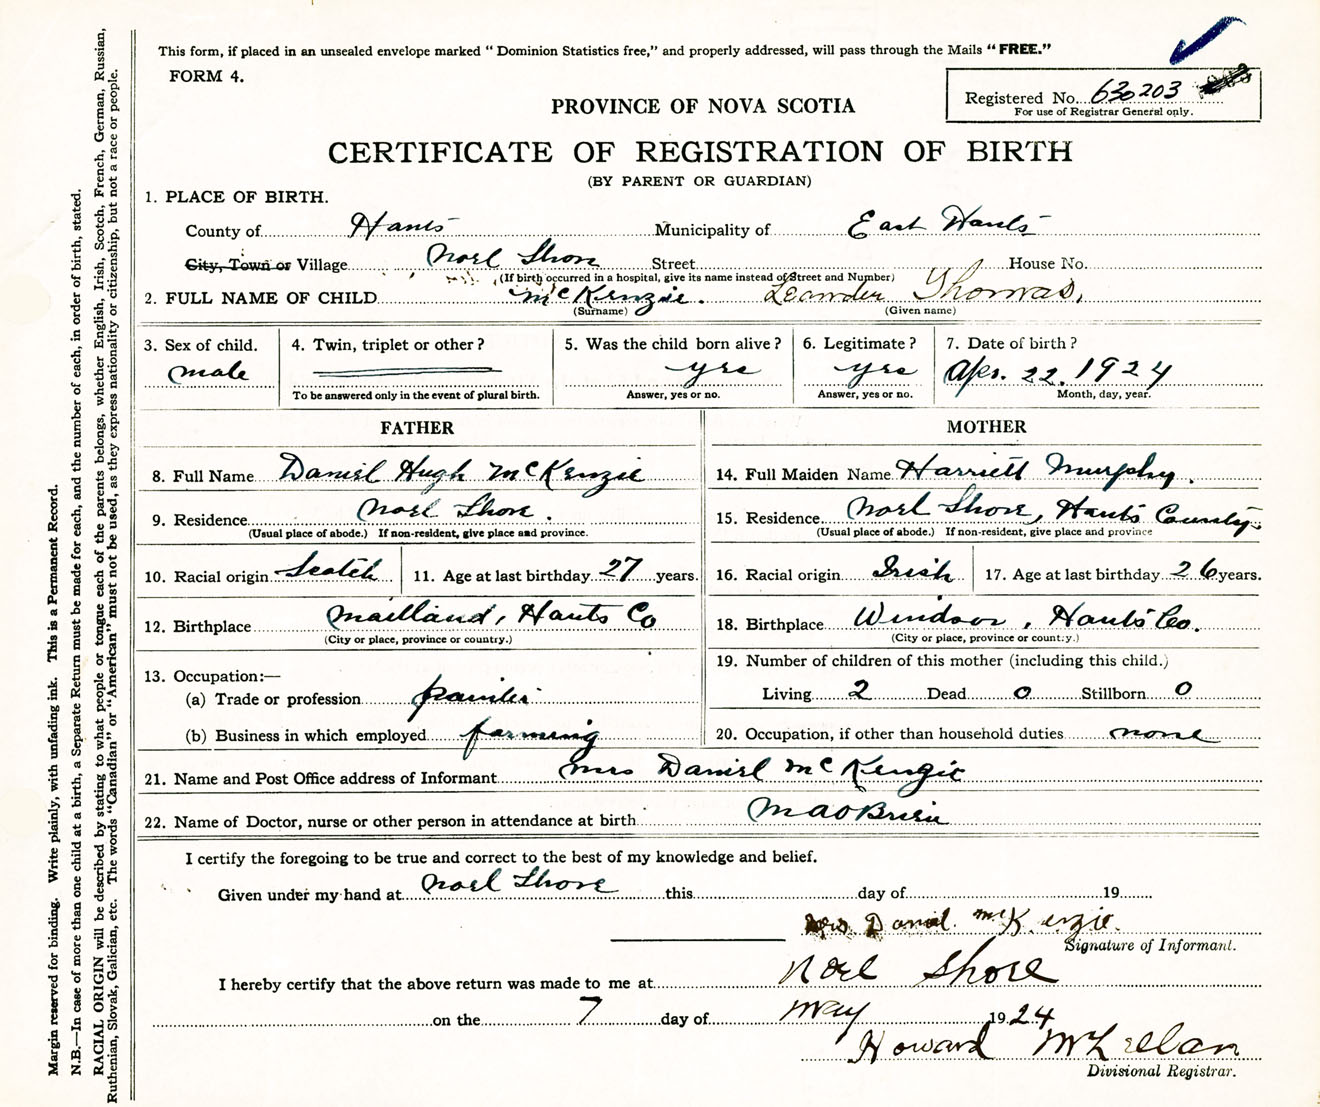 This form, if placed in an unsealed envelope marked “ Dominion Statistics free,” and properly addressed, will pass through the Mails “ FREE.”
FORM 4.
Registered No. 630203
For use of Registrar General only.
PROVINCE OF NOVA SCOTIA
CERTIFICATE OF REGISTRATION OF BIRTH
(BY PARENT OR GUARDIAN)
1. PLACE OF BIRTH.
County of Hants Municipality of East Hants
City, Town or Village Noel Shore Street House No.
(If birth occurred in a hospital, give its name instead of Street and Number)
2. FULL NAME OF CHILD McKenzie. Leander Thomas,
(Surname) (Given name)
3. Sex of child. 4. Twin, triplet or other ? 5. Was the child born alive ? 6. Legitimate ? 7. Date of birth ?
male yes yes Apr. 22. 1924
To be answered only in the event of plural birth. Answer, yes or no. Answer, yes or no. Month, day, year.
FATHER MOTHER
8. Full Name Daniel Hugh McKenzie 14. Full Maiden Name Harriett Murphy.
9. Residence Noel Shore. 15. Residence Noel Shore, Hants County.
(Usual place of abode.) If non-resident, give place and province. (Usual place of abode.) If non-resident, give place and province
10. Racial origin Scotch 11. Age at last birthday 27 years. 16. Racial origin Irish 17. Age at last birthday 26 years.
12. Birthplace Maitland, Hants Co 18. Birthplace Windsor, Hants Co.
(City or place, province or country.) (City or place, province or country.)
13. Occupation:— 19. Number of children of this mother (including this child.)
(a) Trade or profession painter Living 2 Dead 0 Stillborn 0
(b) Business in which employed farming 20. Occupation, if other than household duties none
21. Name and Post Office address of Informant Mrs Daniel McKenzie
22. Name of Doctor, nurse or other person in attendance at birth
I certify the foregoing to be true and correct to the best of my knowledge and belief.
Given under my hand at Noel Shore this day of 19
Mrs Daniel McKenzie.
Signature of Informant.
I hereby certify that the above return was made to me at Noel Shore
on the 7 day of May 1924
Howard McLellan
Divisional Registrar.
Margin reserved for binding. Write plainly, with unfading ink. This is a Permanent Record.
N.B.—In case of more than one child at a birth, a Separate Return must be made for each, and the number of each, in order of birth, stated.
RACIAL ORIGIN will be described by stating to what people or tongue each of the parents belongs, whether English, Irish, Scotch, French, German, Russian,
Ruthenian, Slovak, Galician, etc. The words “Canadian” or “American” must not be used, as they express nationality or citizenship, but not a race or people.